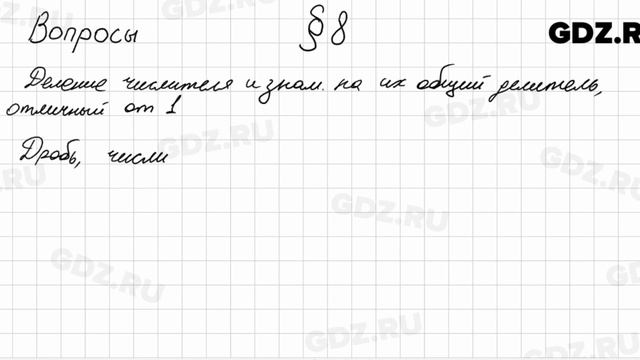 Вопросы § 8 GDZ.RU
Деление числителя и знам. на их общий делитель,
отличный от 1
Дробь, числи
GDZ.RU
GDZ.RU
GDZ.RU
GDZ.RU
GDZ.RU
GDZ.RU
GDZ.RU